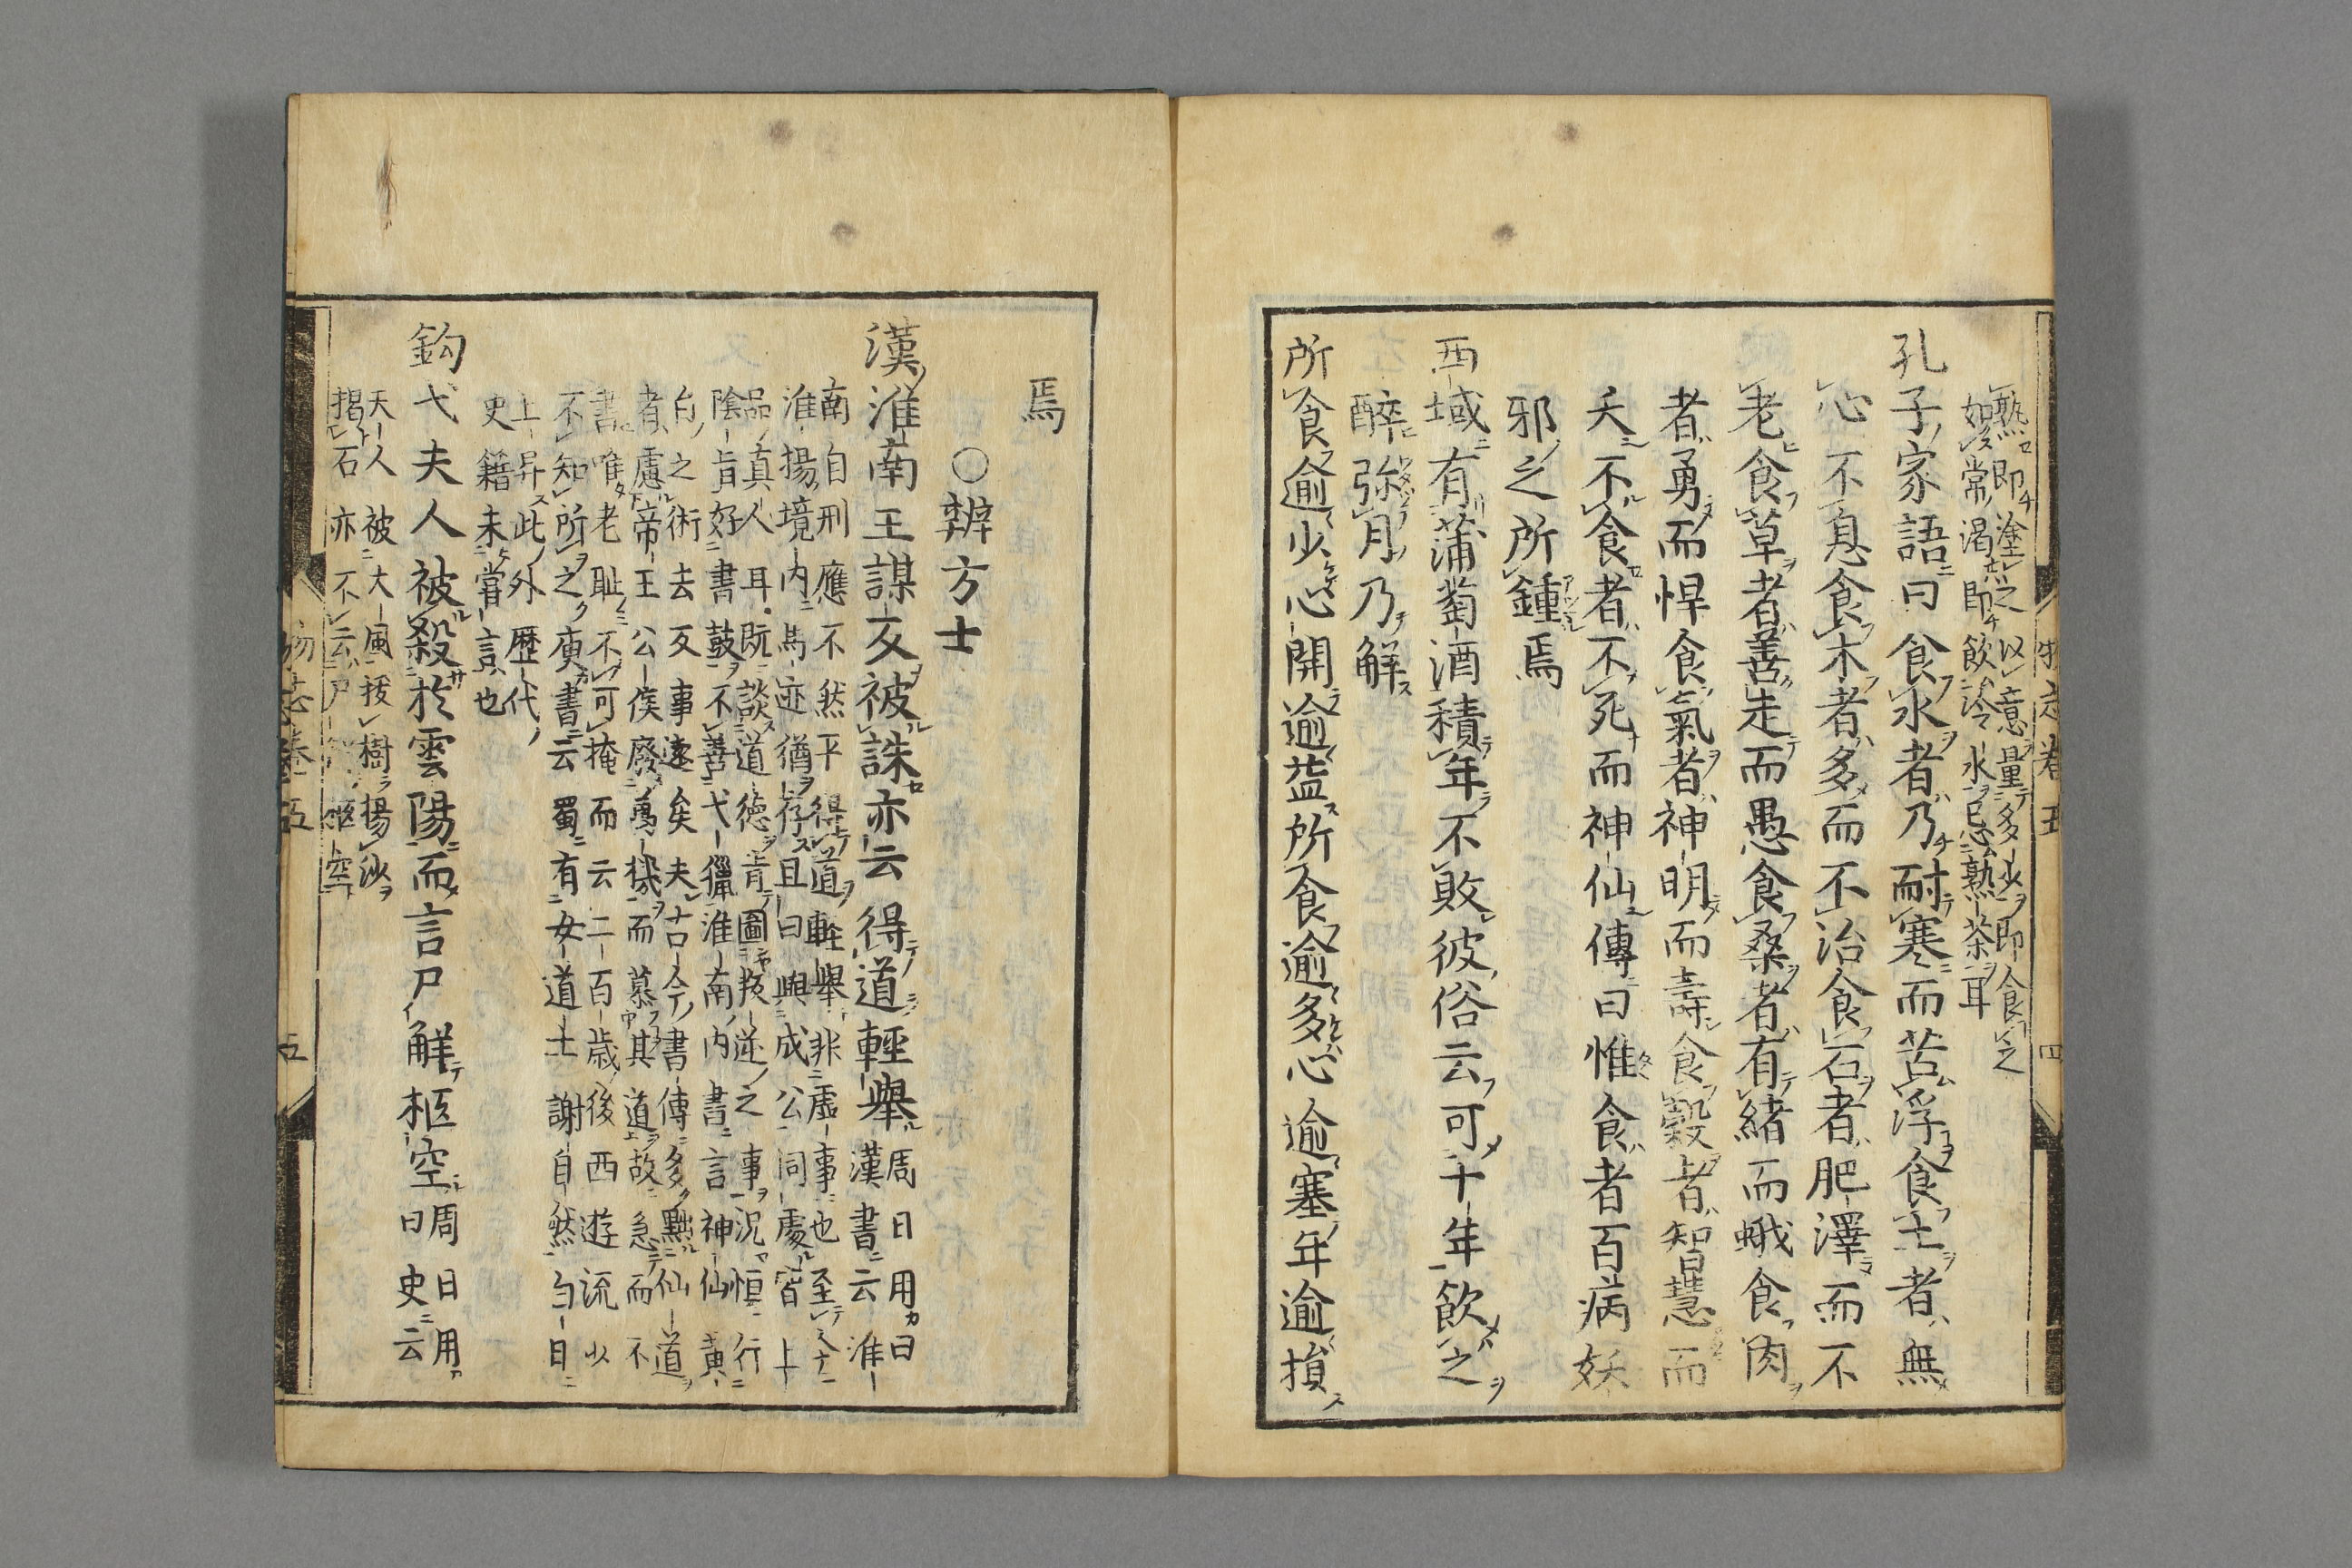 熟即塗之以意量多少即食之
如常渴即飲冷水忌熟茶耳
孔子家語曰食水者乃耐寒而苦浮食土者無
心不息食木者多而不治食石者肥澤而不
老食草者善走而愚食桑者有緒而蛾食肉
者勇而悍食氣者神明而壽食穀者智慧而
夭不食者不死而神仙傳曰惟食者百病妖
邪之所鍾焉
西域有蒲萄酒積年不敗彼俗云可十年飲之
醉弥月乃解
所食逾少心開逾益所食逾多心逾塞年逾損
焉
○辨方士
漢淮南王謀反被誅亦云得道輕舉
周日用曰
漢書云淮
南自刑應不然乎得道輕舉非虛事也至今
淮揚境内馬迹猶存且曰與成公同處皆上
品真人耳既談道徳肯圖叛逆之事况恒行
陰旨好書鼓不善弋獵淮南内書言神仙黄
白之術去反事遠矣夫古今書傳多黜仙道
者慮帝王公侯廢萬機而慕其道故急而不
書唯老耻不可掩而云二百歳後西遊流沙
不知所之庾書云蜀有女道士謝自然白日
上昇此外歴代
史籍未嘗言也
鈎弋夫人被殺於雲陽而言尸解柩空
周日用
曰史云
天人被大風拔樹揚沙
揭石亦不云尸解柩空
物志卷五
四
物志卷五
五